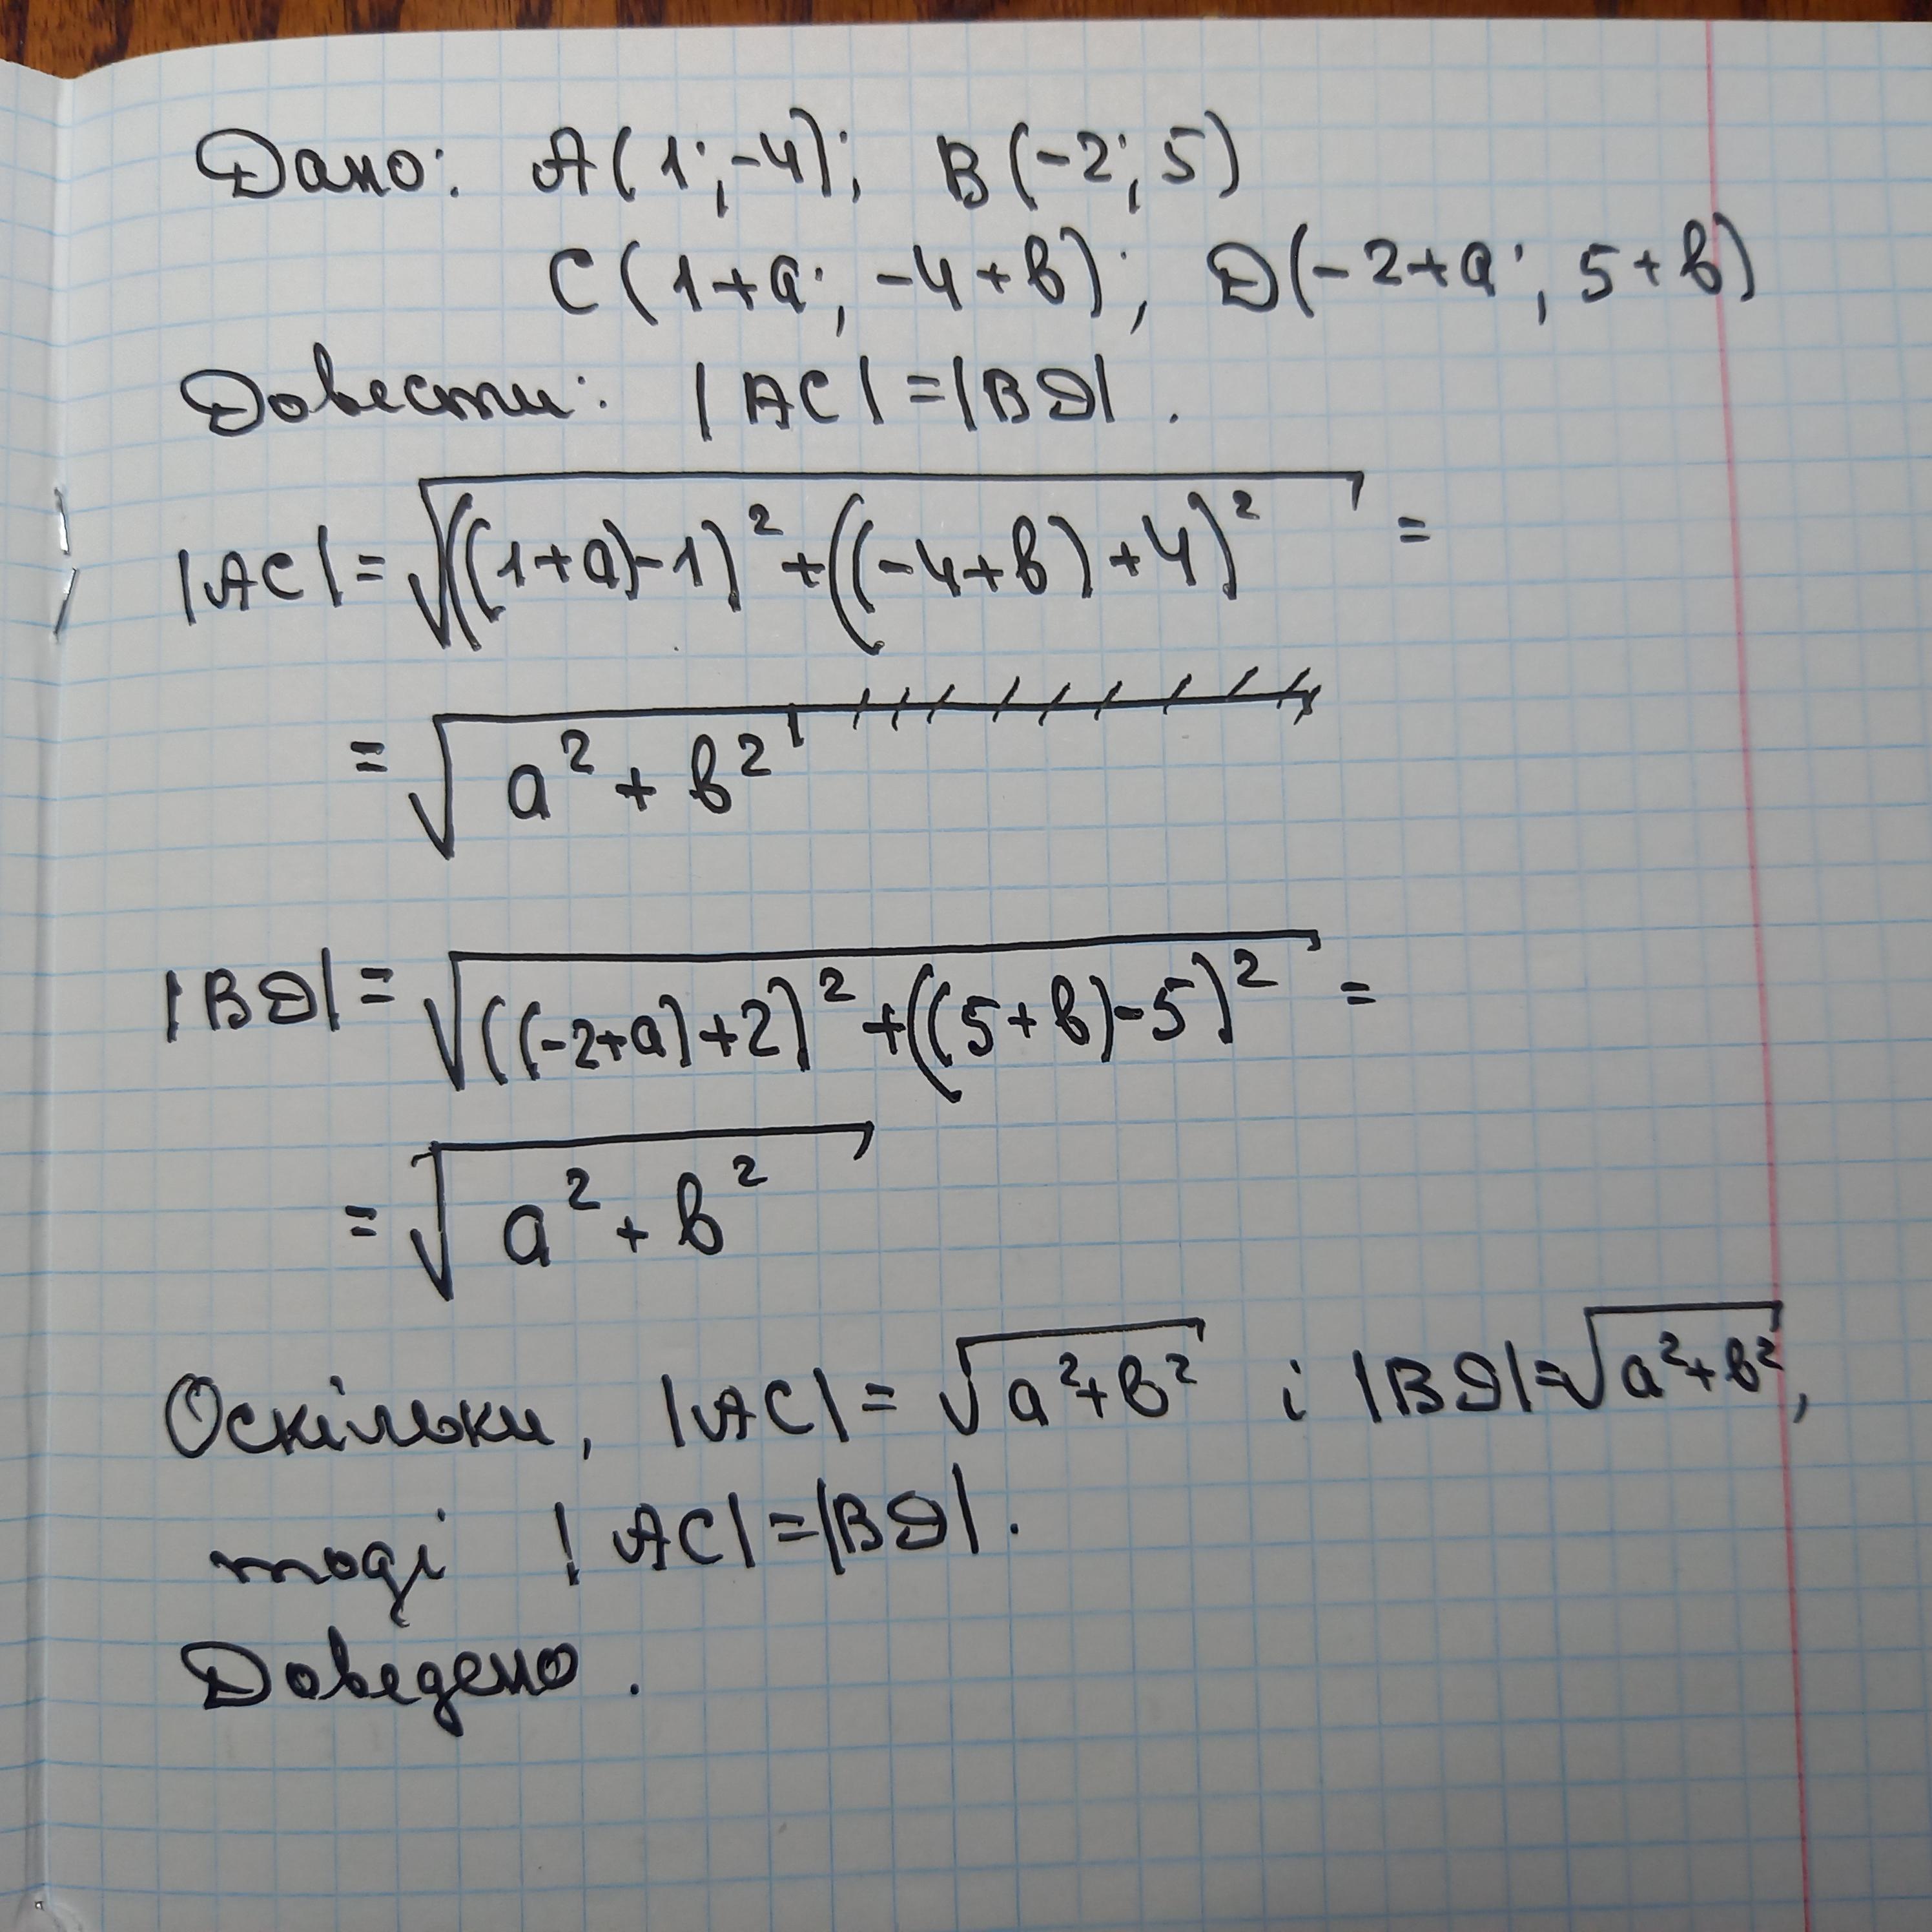 Дано: A(1;-4); B(-2;5)
C(1+a; -4+b); D(-2+a; 5+b)
Довести: |AC|=|BD|.
|AC|=√((1+a)-1)²+((-4+b)+4)² =
=√a²+b²
|BD|=√((-2+a)+2)²+((5+b)-5)² =
=√a²+b²
Оскільки, |AC|=√a²+b² і |BD|=√a²+b²,
тоді |AC|=|BD|.
Доведено.